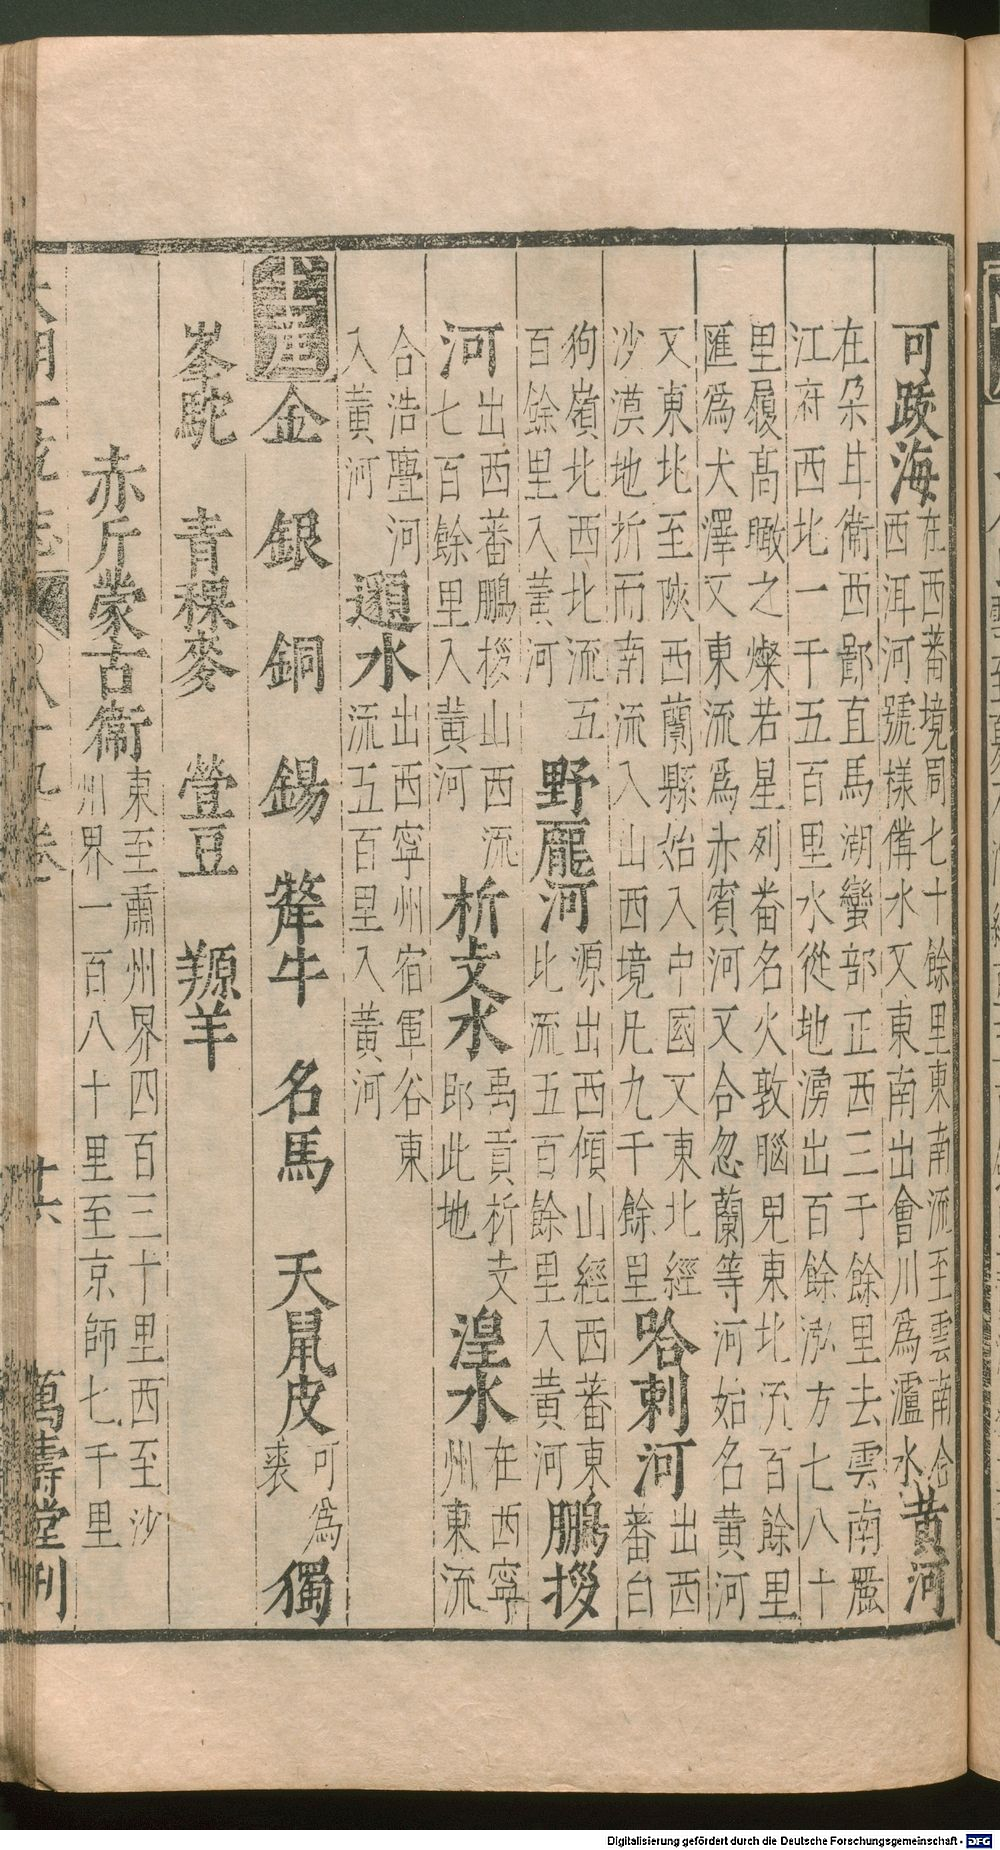 可跋海在西蕃境周七十餘里東南流至雲南合西洱河號樣備水又東南出會川爲瀘水黃河
在朶甘衞西鄙直馬湖蠻部正西三千餘里去雲南麗江府西北一千五百里水從地湧出百餘泓方七八十
里履高瞰之燦若星列番名火敦腦兒東北流百餘里匯爲大澤又東流爲赤賓河又合忽蘭等河始名黃河
又東北至陜西蘭縣始入中國又東北經沙漠地折而南流入山西境凡九千餘里哈剌河出西蕃白
狗嶺北西北流五百餘里入黃河野龎河源出西傾山經西蕃東北流五百餘里入黃河鵬拶
河出西蕃鵬拶山西流七百餘里入黃河析支水禹貢析支即此地湟水在西寧州東流
合浩亹河入黃河邈水出西寧州宿軍谷東流五百里入黃河
土產 金 銀 銅 錫 犛牛 名馬 天鼠皮可爲裘 獨
峯駝 青稞麥 豆 羱羊
赤斤蒙古衞東至肅州界四百三十里西至沙州界一百八十里至京師七千里
大明一統志 八十九卷 廿六 萬壽堂刊
Digitalisierung gefördert durch die Deutsche Forschungsgemeinschaft - DFG